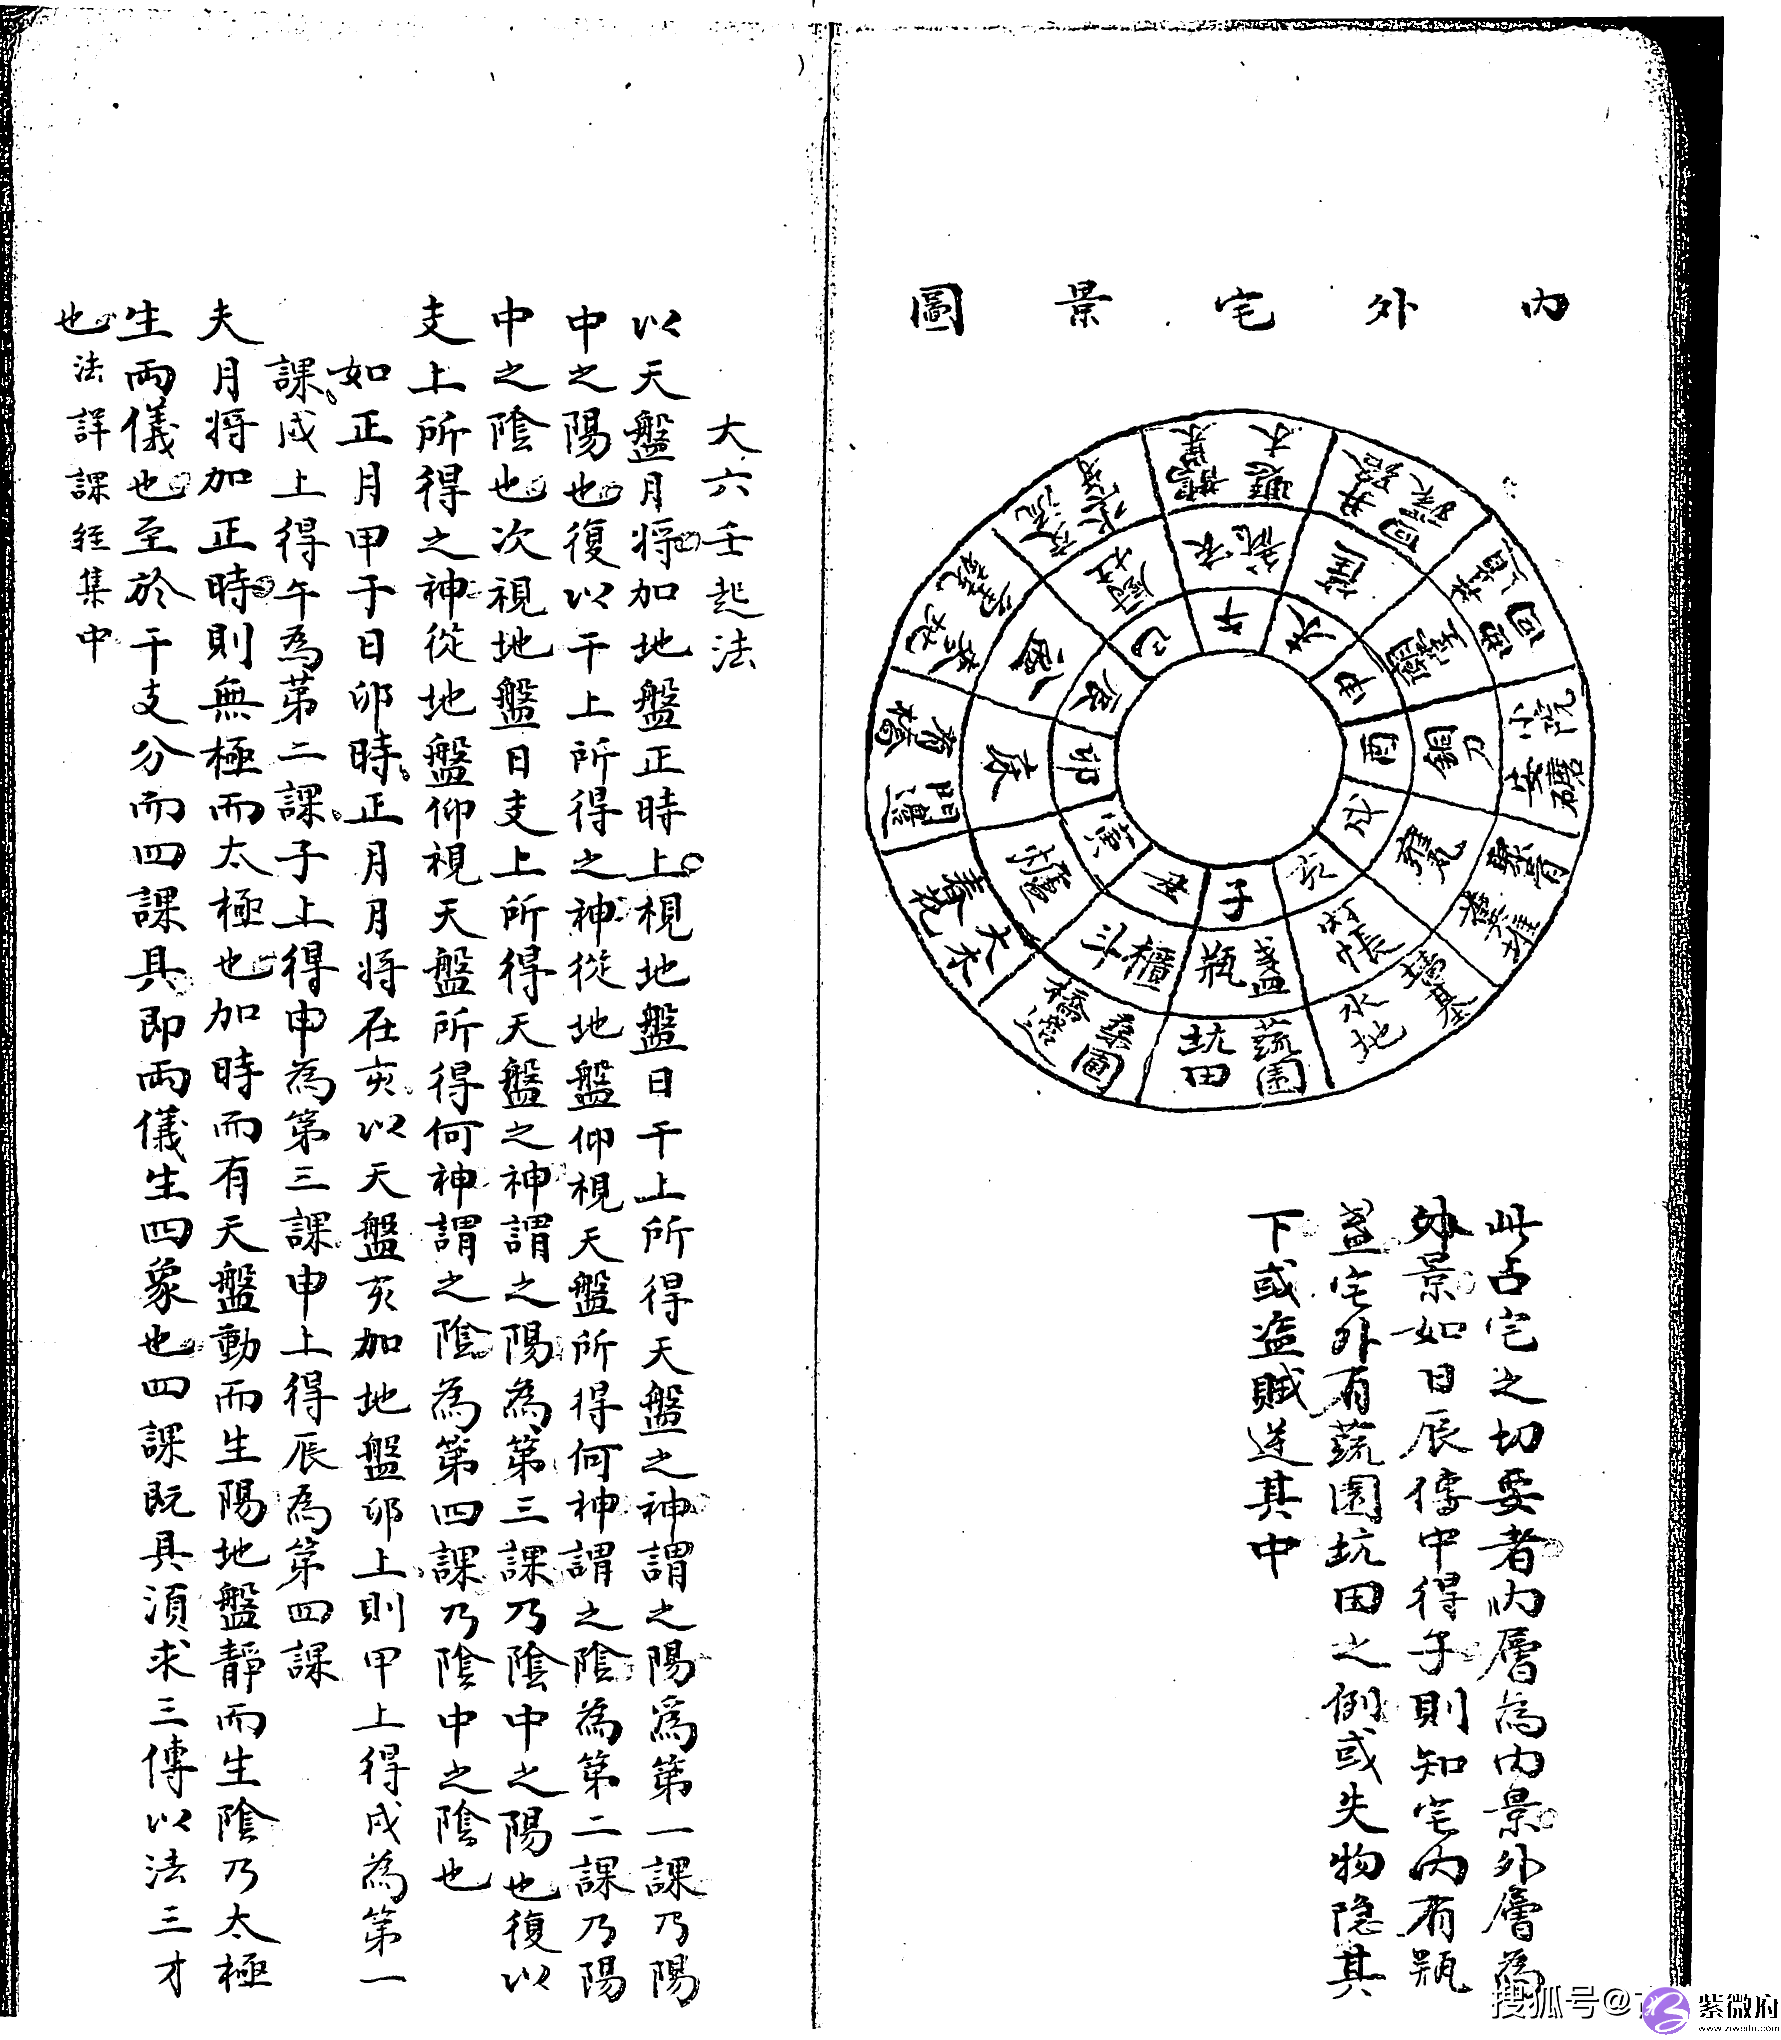 內外宅景圖
午
未
申
酉
戌
亥
子
丑
寅
卯
辰
巳
銅刀
瓶盞
櫃斗
爐
床
竈
小院
安磨
墻基
水地
蔬園
坑田
桑園
橋
大木
門
有橋
此占宅之切要者內層為內景外層為
外景如日辰傳中得子則知宅內有瓶
盞宅外有蔬園坑田之例或失物隱其
下或盜賊逆其中
大六壬起法
以天盤月將加地盤正時上視地盤日干上所得天盤之神謂之陽為第一課乃陽
中之陽也復以干上所得之神從地盤仰視天盤所得何神謂之陰為第二課乃陽
中之陰也次視地盤日支上所得天盤之神謂之陽為第三課乃陰中之陽也復以
支上所得之神從地盤仰視天盤所得何神謂之陰為第四課乃陰中之陰也
如正月甲子日卯時正月月將在亥以天盤亥加地盤卯上則甲上得戌為第一
課戌上得午為第二課子上得申為第三課申上得辰為第四課
夫月將加正時則無極而太極也加時而有天盤動而生陽地盤靜而生陰乃太極
生兩儀也至於干支分而四課具即兩儀生四象也四課既具須求三傳以法三才
也法詳課經集中
搜狐号@
紫微府
www.ziweifu.com